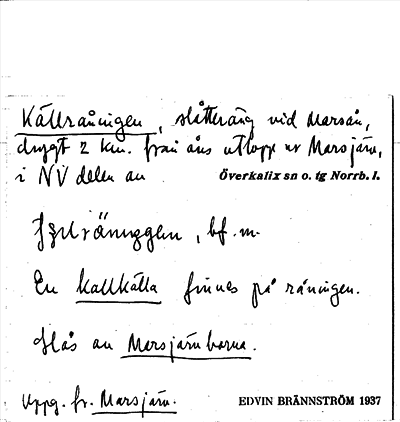 Källråningen, slåtteräng vid Marsån,
drygt 2 km. från åns utlopp ur Marsjärv,
i NV delen av Överkalix sn o. tg Norrb. l.
, bf. m.
En kallkälla finnes på råningen.
Slås av Marsjärvborna.
Uppg. fr. Marsjärv.
EDVIN BRÄNNSTRÖM 1937